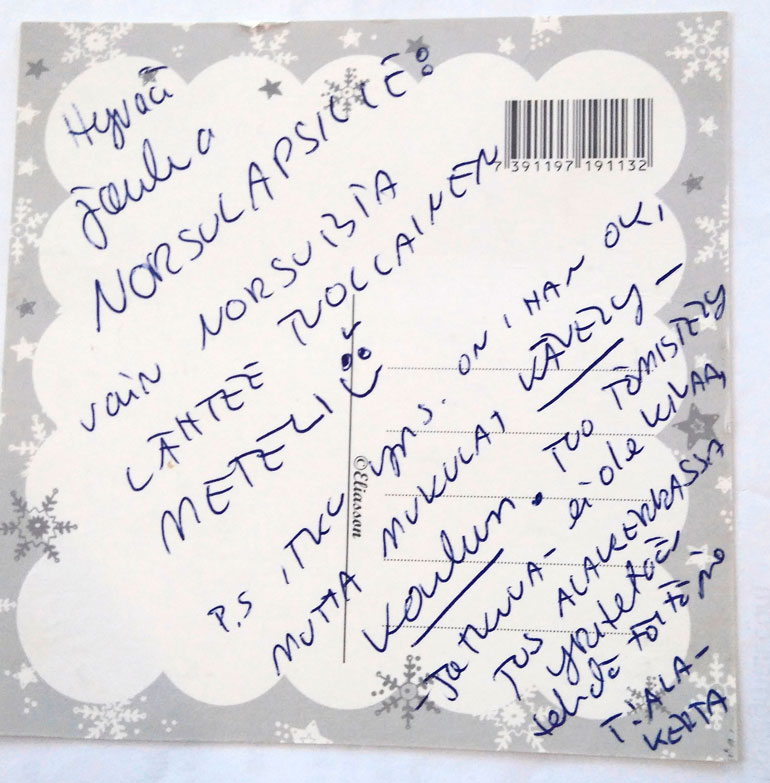 Hyvää
joulua
NORSULAPSILLE!
VAIN NORSUISTA
LÄHTEE TUOLLAINEN
METELI
P.S ITKU yms. ON IHAN OK,
MUTTA MUKULAT KÄVELY-
Kouluun. TUO TÖMISTELY
-JATKUVA- ei ole KIVAA,
JOS ALAKERRASSA
yritetään
tehdä töitä
T: ALA-
KERTA
©Eliasson
7 391197 191132